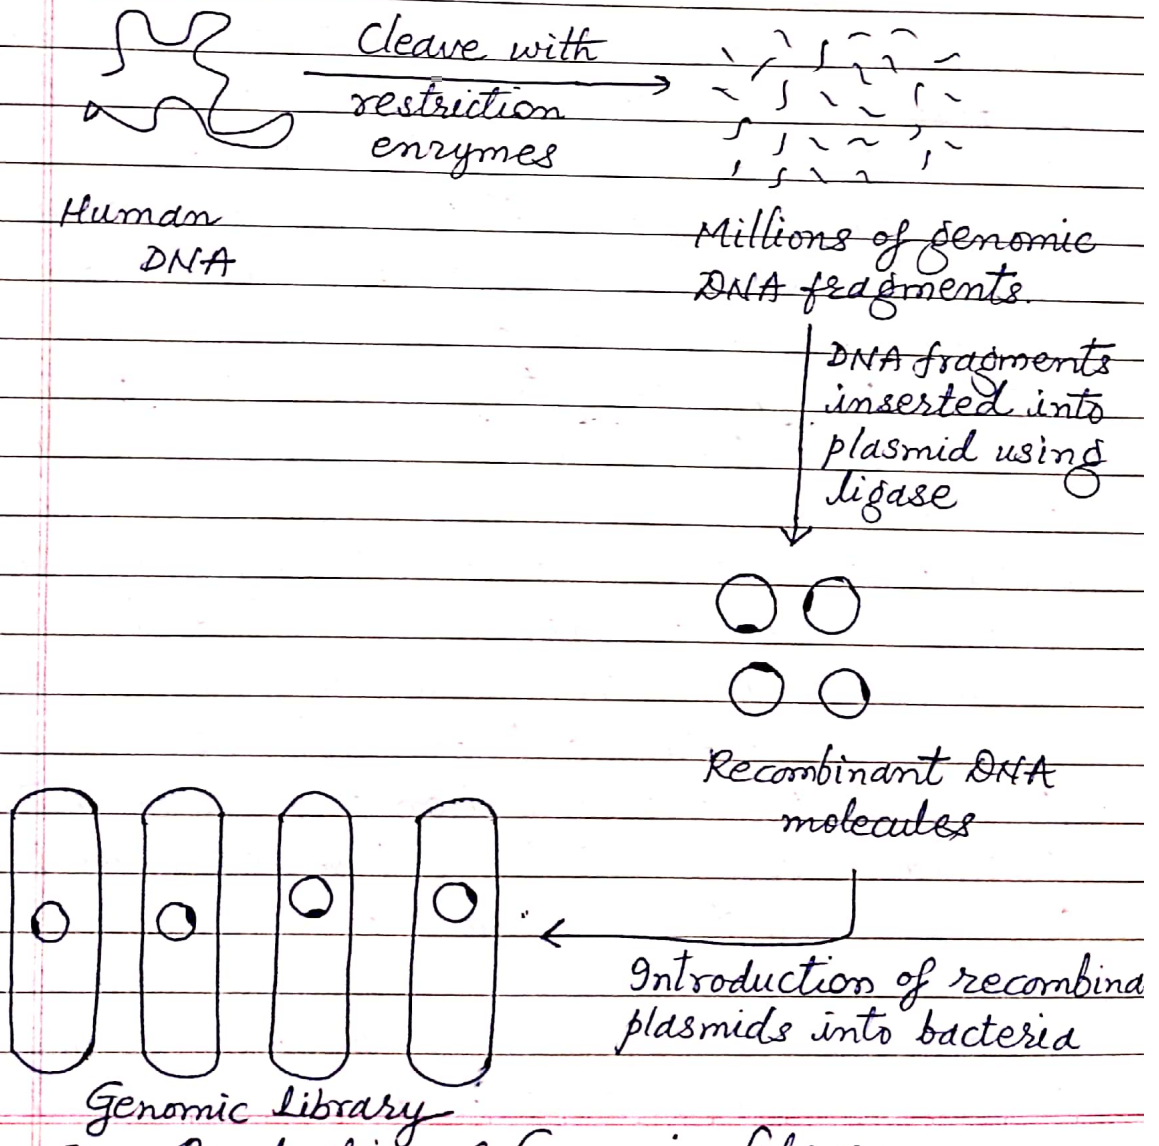 Cleave with
restriction
enzymes
Human
DNA
Millions of genomic
DNA fragments.
DNA fragments
inserted into
plasmid using
ligase
Recombinant DNA
molecules
Introduction of recombina
plasmids into bacteria
Genomic Library